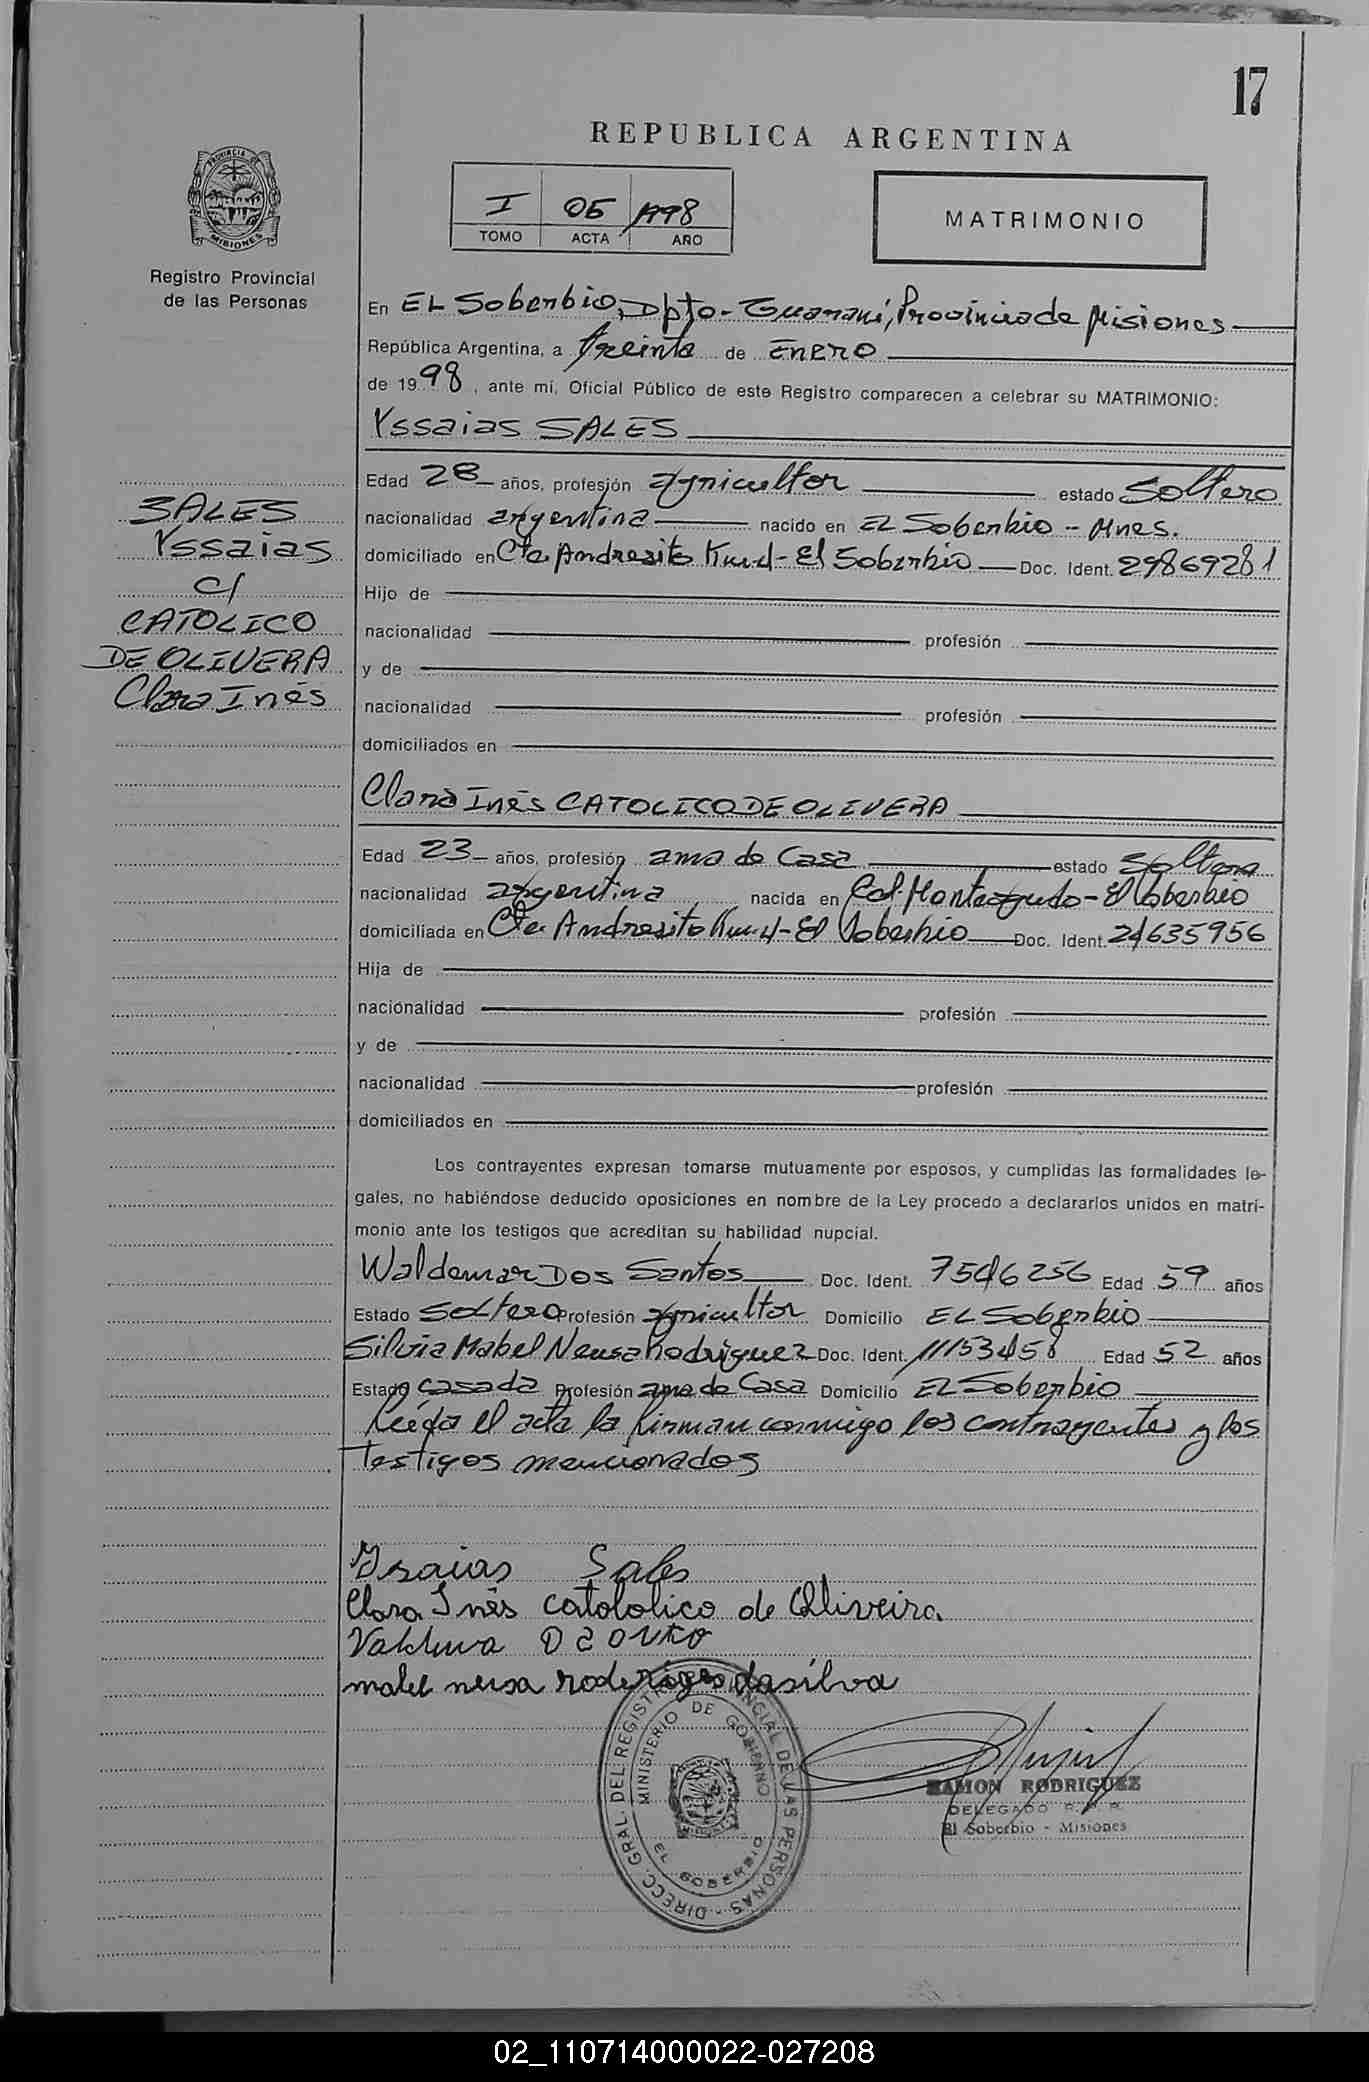 17
REPUBLICA ARGENTINA
I 05 1998
TOMO ACTA AÑO
MATRIMONIO
PROVINCIA DE MISIONES
Registro Provincial
de las Personas
SALES
Yssaias
c/
CATOLICO
DE OLIVERA
Clara Inés
En EL Soberbio, Dpto- Guaraní, Provincia de Misiones
República Argentina, a treinta de ENERO
de 1998, ante mí, Oficial Público de este Registro comparecen a celebrar su MATRIMONIO:
Yssaias SALES
Edad 28 años, profesión agricultor estado Soltero
nacionalidad argentina nacido en EL Soberbio - Mnes.
domiciliado en Cte Andresito - El Soberbio Doc. Ident. 29869281
Hijo de
nacionalidad profesión
y de
nacionalidad profesión
domiciliados en
Clara Inés CATOLICO DE OLIVERA
Edad 23 años, profesión ama de Casa estado Soltera
nacionalidad argentina nacida en Col. Monteagudo - El Soberbio
domiciliada en Cte. Andresito - El Soberbio Doc. Ident. 24635956
Hija de
nacionalidad profesión
y de
nacionalidad profesión
domiciliados en
Los contrayentes expresan tomarse mutuamente por esposos, y cumplidas las formalidades le-
gales, no habiéndose deducido oposiciones en nombre de la Ley procedo a declararlos unidos en matri-
monio ante los testigos que acreditan su habilidad nupcial.
Waldemar Dos Santos Doc. Ident. 7546256 Edad 59 años
Estado Soltero Profesión agricultor Domicilio EL Soberbio
Silvia Mabel Neusa Rodriguez Doc. Ident. 11153458 Edad 52 años
Estado casada Profesión ama de Casa Domicilio EL Soberbio
Leída el acta la firman conmigo los contrayentes y los
Testigos mencionados
Isaias Sales
Clara Inês catololico de Oliveira
mabel neusa roderiges dasilva
DIRECC. GRAL. DEL REGISTRO PROVINCIAL DE LAS PERSONAS
MINISTERIO DE GOBIERNO
EL SOBERBIO
RAMON RODRIGUEZ
DELEGADO R. P. P.
El Soberbio - Misiones
02_110714000022-027208